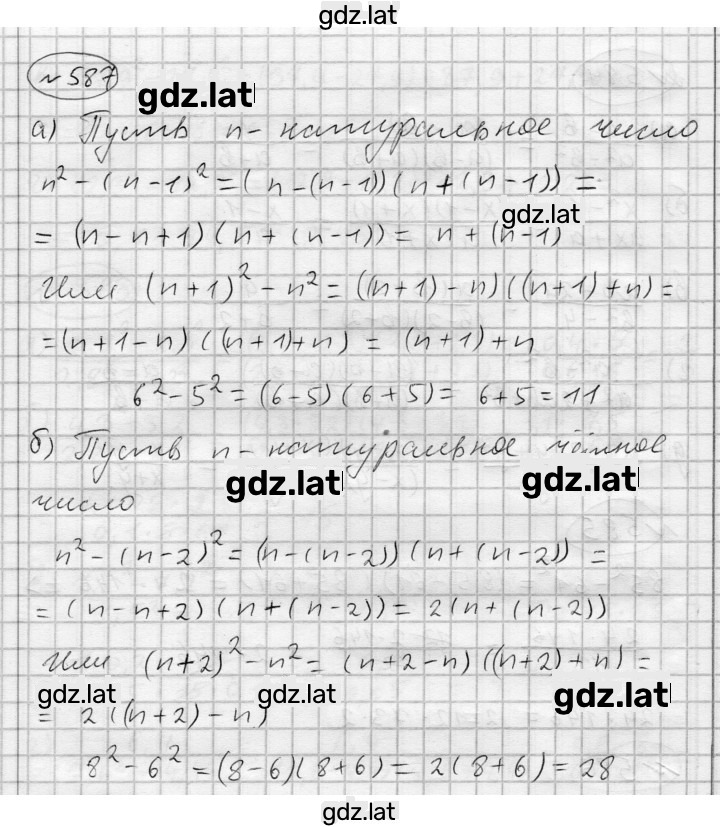 gdz.lat
№ 587
gdz.lat
а) Пусть n - натуральное число
n² - (n-1)² = (n-(n-1))(n+(n-1)) =
gdz.lat
= (n-n+1)(n+(n-1)) = n+(n-1)
Или (n+1)² - n² = ((n+1)-n)((n+1)+n) =
= (n+1-n)((n+1)+n) = (n+1)+n
6² - 5² = (6-5)(6+5) = 6+5 = 11
б) Пусть n - натуральное чётное
gdz.lat gdz.lat
число
n² - (n-2)² = (n-(n-2))(n+(n-2)) =
= (n-n+2)(n+(n-2)) = 2(n+(n-2))
Или (n+2)² - n² = (n+2-n)((n+2)+n) =
gdz.lat gdz.lat gdz.lat
= 2((n+2)-n)
8² - 6² = (8-6)(8+6) = 2(8+6) = 28
gdz.lat